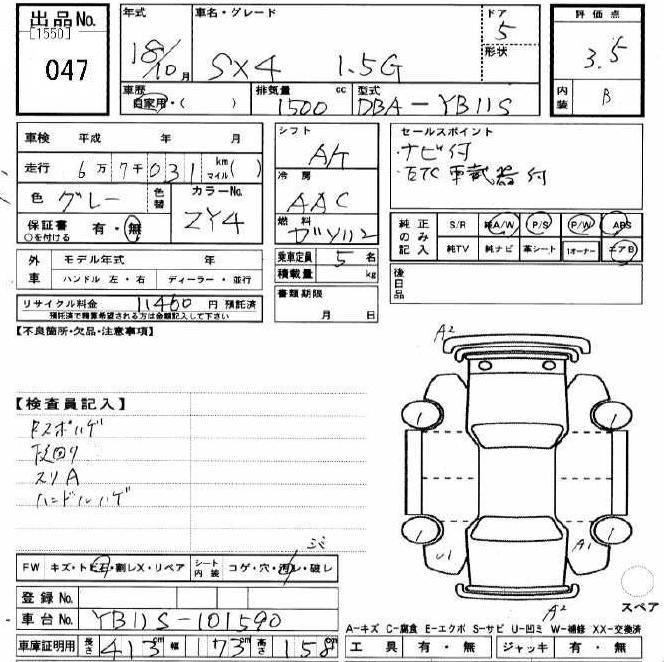 出品No.
[1550]
047
年式
18/10 月
車名・グレード
SX4 1.5G
ドア
5
形状
評価点
3.5
内装
B
車歴
自家用・( )
排気量
1500 cc
型式
DBA-YB11S
車検 平成 年 月
走行 6万7千031 km マイル( )
色 グレー 色替
カラーNo.
ZY4
保証書 有・無
○を付ける
シフト
AT
冷房
AAC
燃料
ガソリン
乗車定員 5 名
積載量 kg
書類期限
月 日
セールスポイント
・ナビ付
・ETC車載器付
純正のみ記入
S/R 純A/W P/S P/W ABS
純TV 純ナビ 革シート 1オーナー エアB
後日品
外車
モデル年式 年
ハンドル 左・右 ディーラー・並行
リサイクル料金 11460 円 預託済
預託済で精算希望される方は金額記入して下さい
【不良箇所・欠品・注意事項】
【検査員記入】
下回り
スリA
ハンドルハゲ
A2
1
1
1
1
U1
A1
A2
スペア
シミ
FW キズ・トビ石・割レX・リペア
シート内装 コゲ・穴・汚レ・破レ
登録No.
車台No. YB11S-101590
車庫証明用 長さ 413cm 幅 173cm 高さ 158cm
A-キズ C-腐食 E-エクボ S-サビ U-凹ミ W-補修 XX-交換済
工具 有・無 ジャッキ 有・無